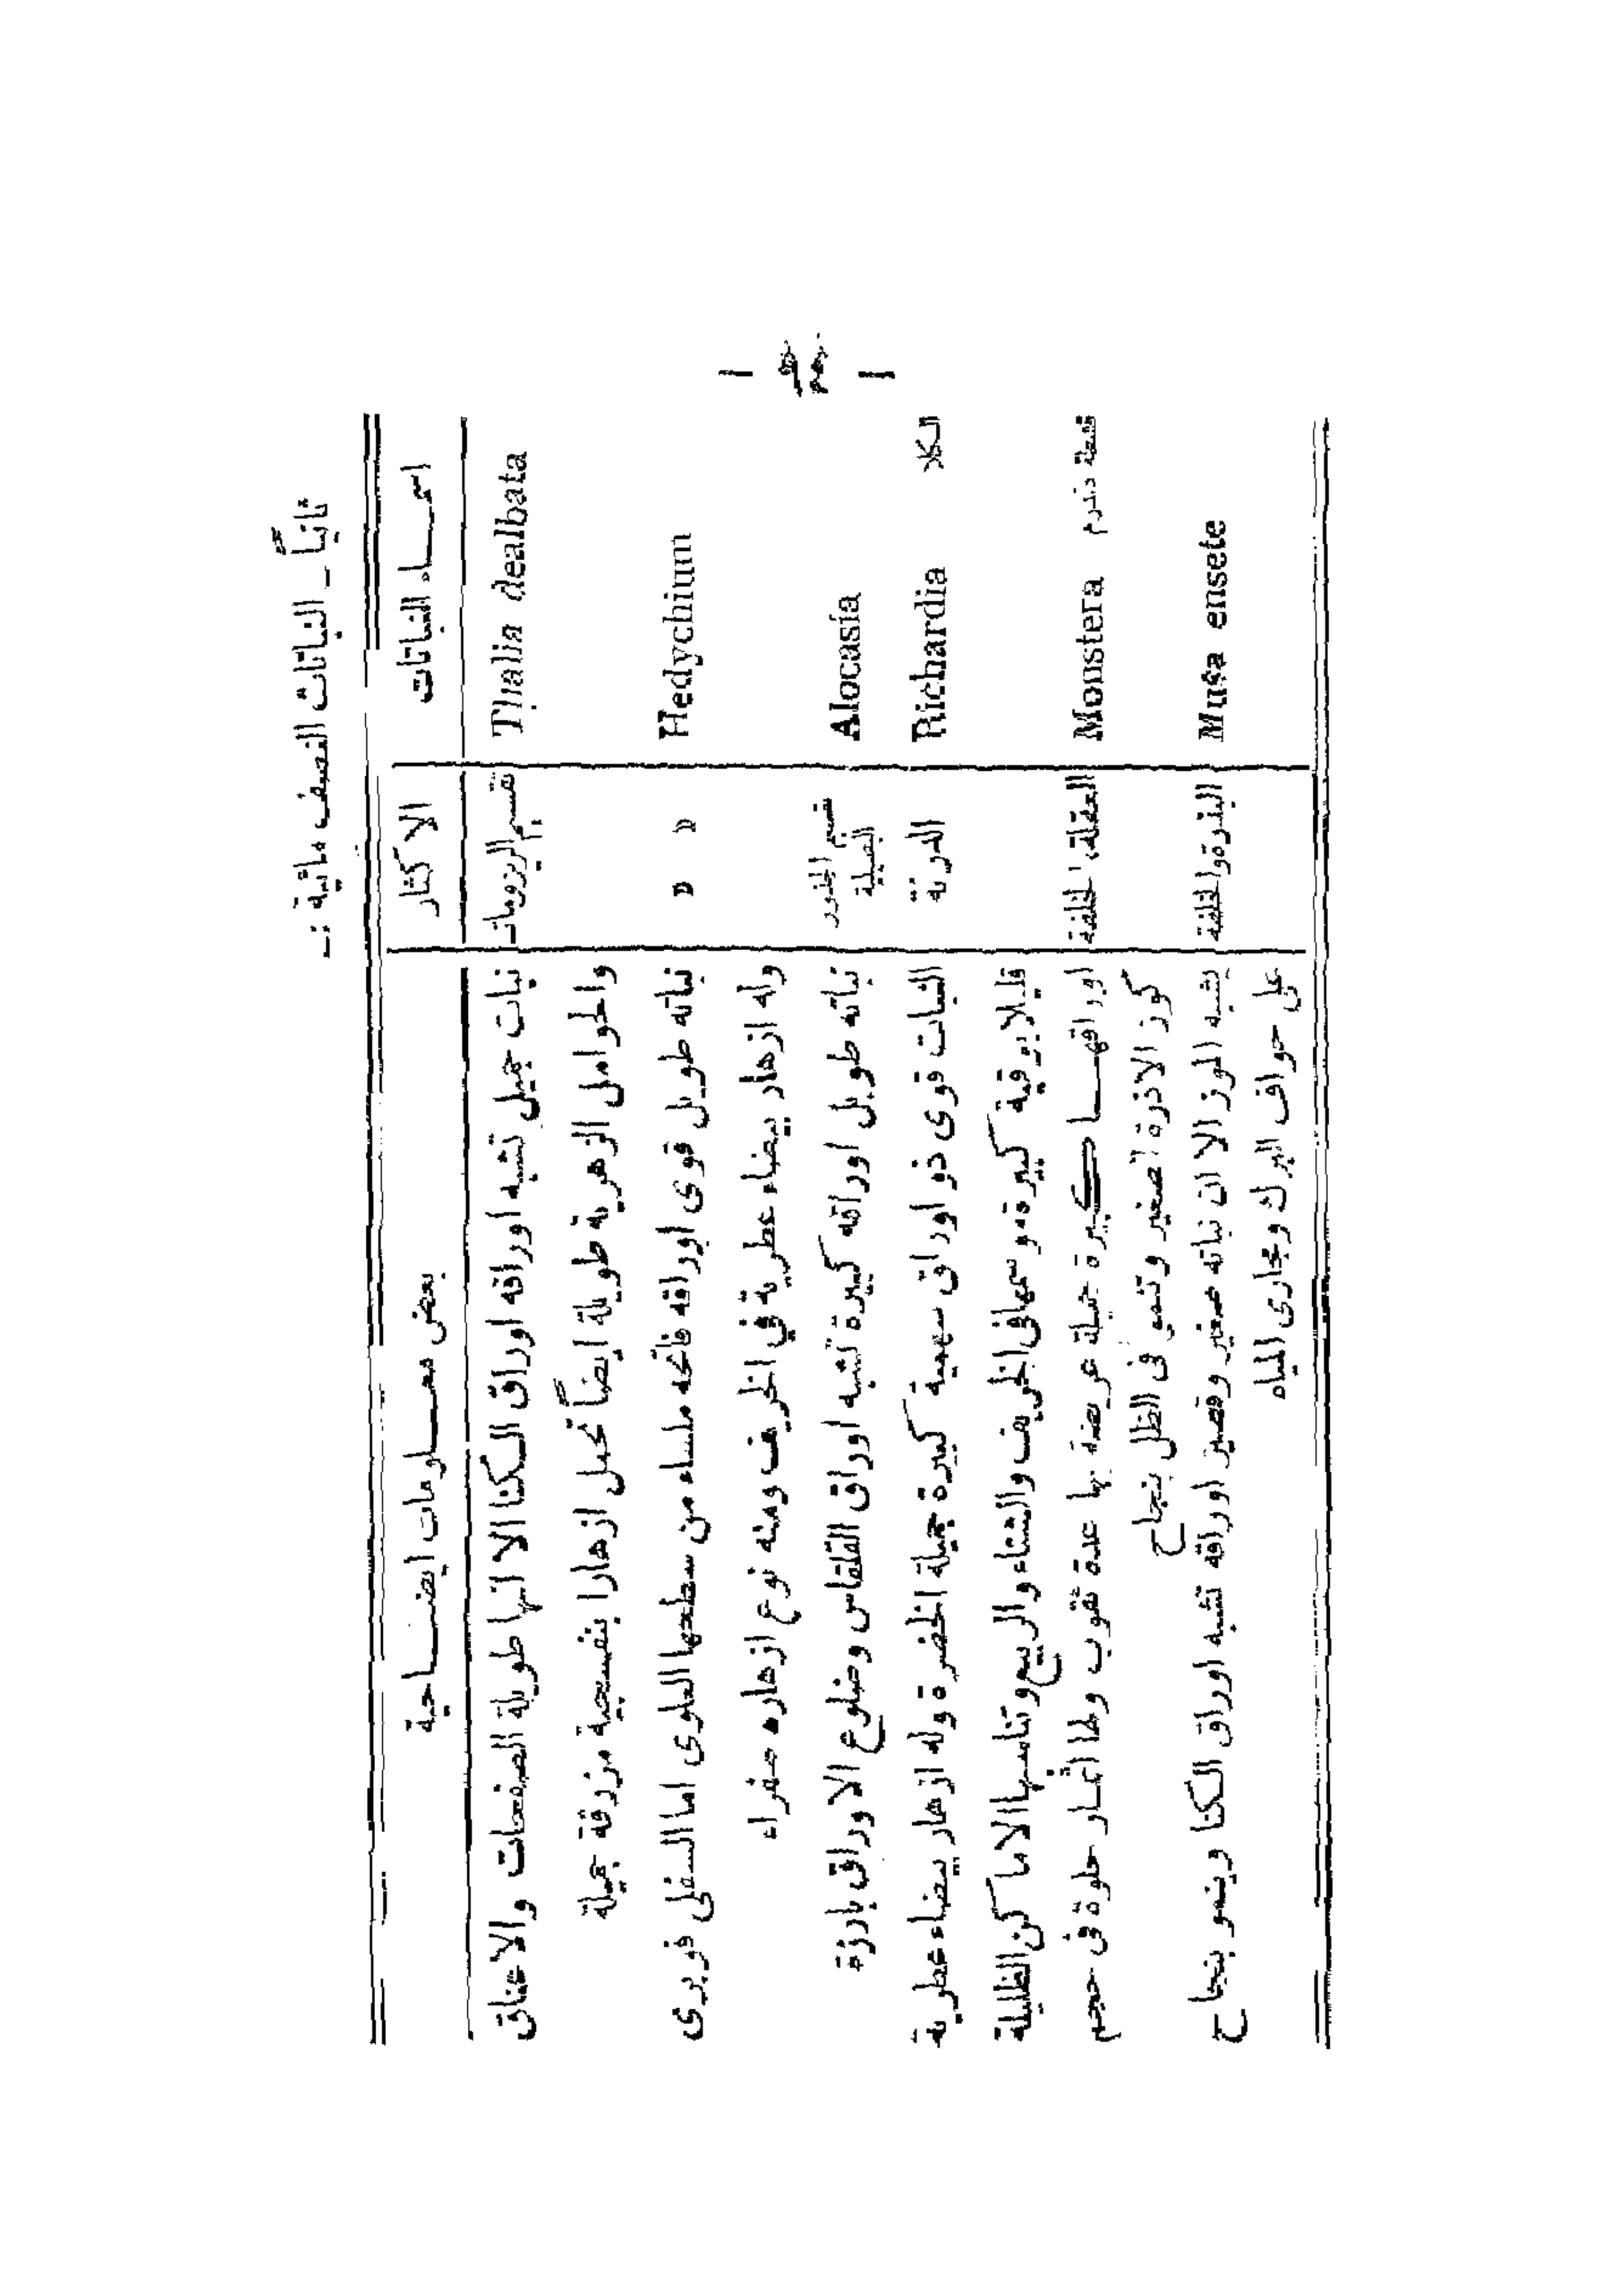 ثانياً ـ النباتات النصف مائية :ـ
اسماء النباتات الاكثار بعض معلومات ايضاحية
Thalia dealbata تقسيم الريزومات نبات جميل تشبه اوراقه اوراق الكنا الا انها طويلة الصفحات والاعناق
والحوامل الزهرية طويلة ايضاً تحمل ازهارا بنفسجية مزرقة جميلة
Hedychium » » نباته طويل قوى اوراقه فاتحه ملساء من سطحها العلوى اما السفلى فوبرى
وله ازهار بيضاء عطرية في الخريف ومنه نوع ازهاره صفراء
Alocasia تقسيم الجذور البصيلية نباته طويل اوراقه كبيرة تشبه اوراق القلقاس وضلوع الاوراق بارزة
Richardia الكلا الدرنة النبات قوى ذو اوراق سهمية كبيرة جميلة الخضرة وله ازهار بيضاء عطرية
قليلا بوقية كبيرة وموسمها فى الخريف والشتاء والربيع وتناسبها الاماكن الظليلة
Monstera قشطة العقلة، الخلفة اوراقها كبيرة جميلة عريضة بها عدة ثقوب ولها اثمار حلوة فى حجم
كوز الاذرة الصغير وتنمو فى الظل بنجاح
Musa ensete البذرة والخلفة يشبه الموز الا ان نباته صغير وقصير اوراقه تشبه اوراق الكنا وينمو بنجاح
على حواف البرك ومجارى المياه